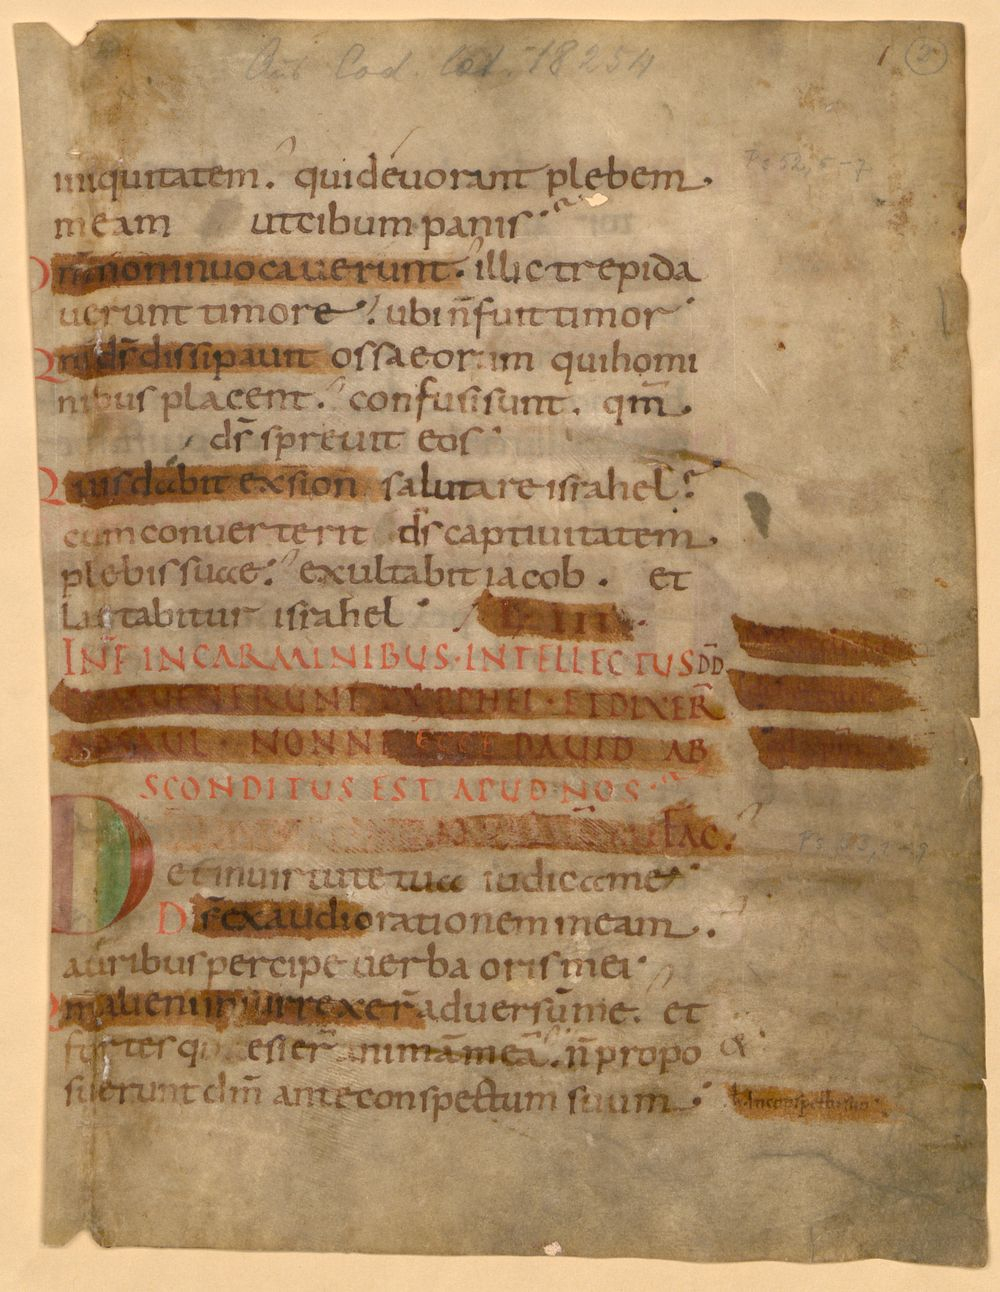 Aus Cod. lat. 18254
1 2
iniquitatem. qui devorant plebem
Ps 52, 5-7
meam ut cibum panis
Dn̄m non invocaverunt. illic trepida
verunt timore. ubi n̄ fuit timor
Qm̄ ds̄ dissipavit ossa eorum qui homi
nibus placent. confusi sunt. qm̄
ds̄ sprevit eos
Quis dabit ex sion salutare israhel?
cum converterit ds̄ captivitatem
plebis suae. exultabit iacob. et
laetabitur israhel LIII
IN F̄ IN CARMINIBUS INTELLECTUS DD̄
CUM VENERUNT ZYPHEI ET DIXER̄
AD SAUL NONNE ECCE DAVID AB
SCONDITUS EST APUD NOS
fac.
Ps. 53, 1-
et in virtute tua iudica me
Ds̄ exaudi orationem meam.
auribus percipe verba oris mei
Qm̄ alieni insurrexer̄ adversū me. et
fortes quaesier̄ animā meā. n̄ propo
suerunt dm̄ ante conspectum suum
in conspectu suo